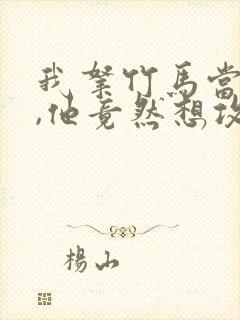 我拏竹馬當
,他竟然想攻
楊山